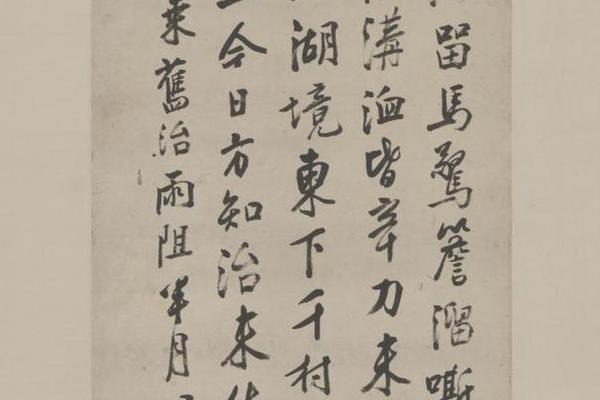 留馬驚簷溜嘶
溝洫皆辛力来
湖境東下千村
今日方知治来
舊治雨阻半月